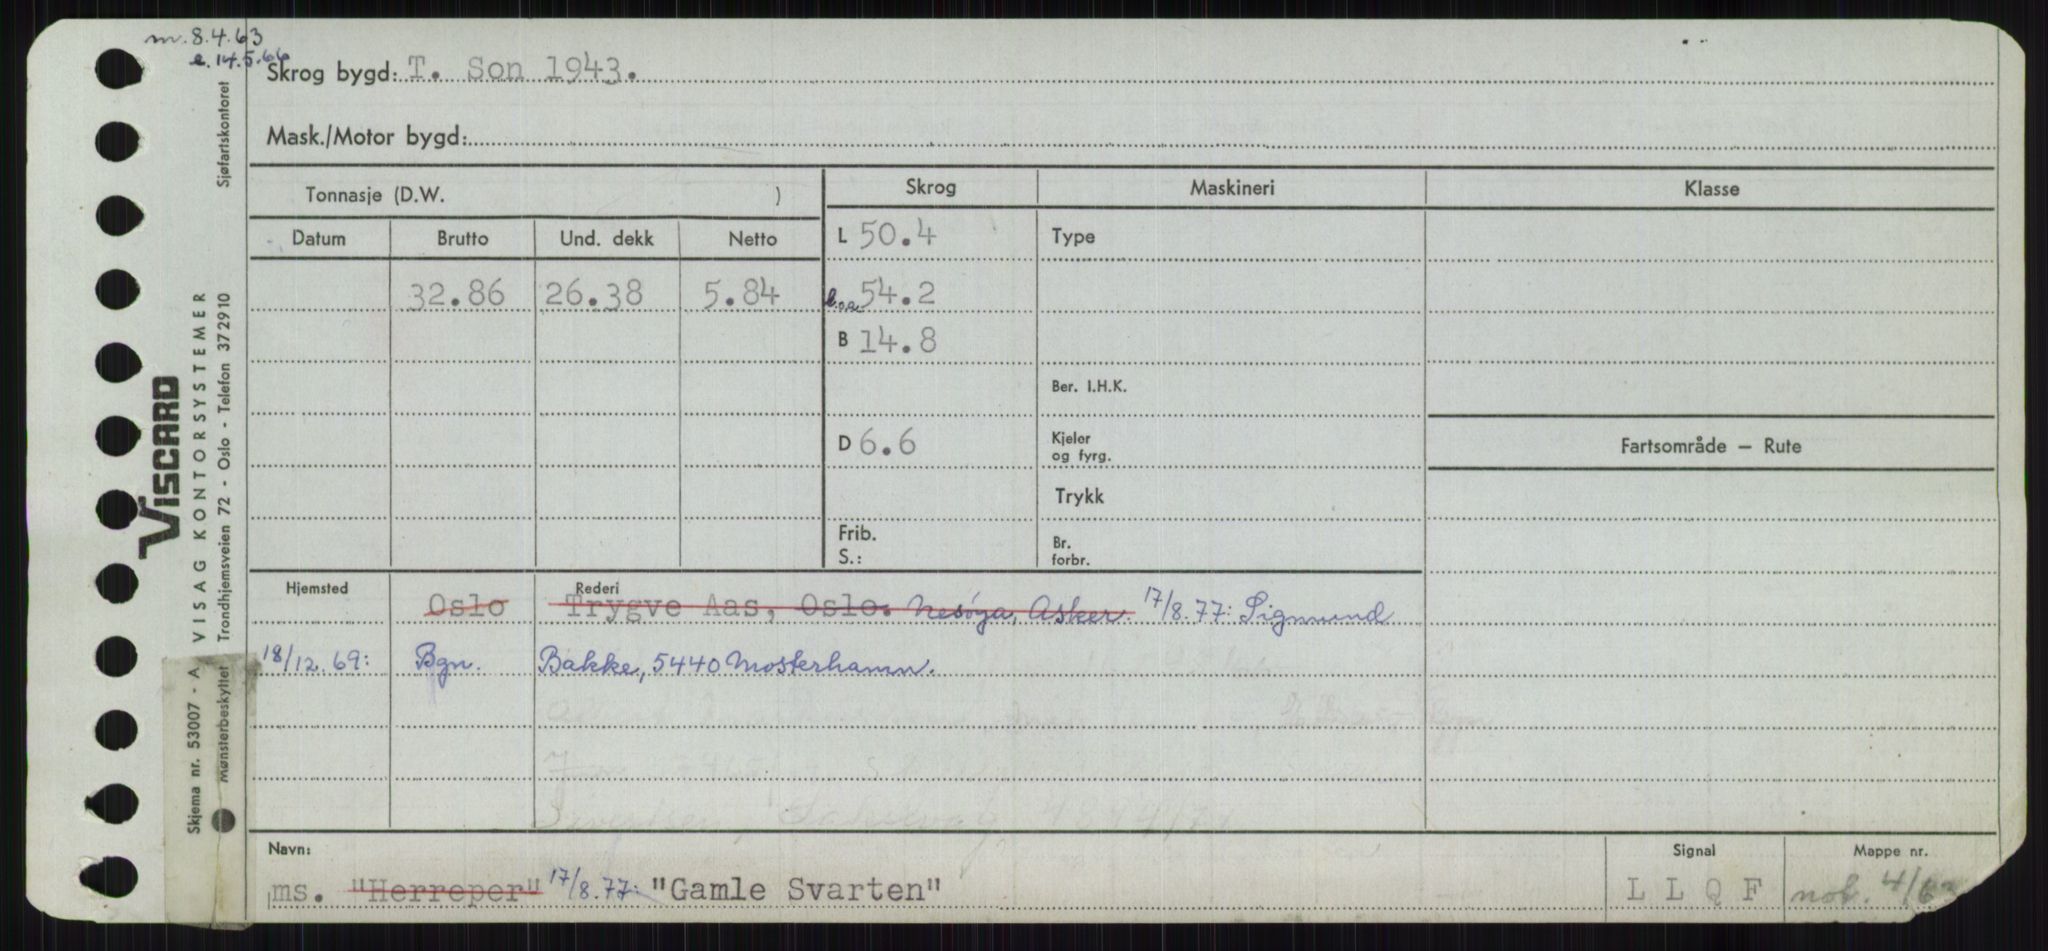 m. 8.4.63
e. 14.5.66
Skrog bygd: T. Son 1943.
Mask./Motor bygd:
Tonnasje (D.W. )
Skrog Maskineri Klasse
Datum Brutto Und. dekk Netto
L 50.4 Type
32.86 26.38 5.84 l.oa 54.2
B 14.8
Ber. I.H.K.
D 6.6 Kjeler og fyrg.
Fartsområde — Rute
Trykk
Frib. S.:
Br. forbr.
Hjemsted Rederi
Oslo Trygve Aas, Oslo. Nesøya, Asker. 17/8.77: Sigmund
18/12.69: Bgn. Bakke, 5440 Mosterhamn.
Navn: Signal Mappe nr.
ms. "Herreper" 17/8.77: "Gamle Svarten" L L Q F
Sjøfartskontoret
VISCARD
VISAG KONTORSYSTEMER
Trondhjemsveien 72 - Oslo - Telefon 372910
Skjema nr. 53007 - A
Mønsterbeskyttet